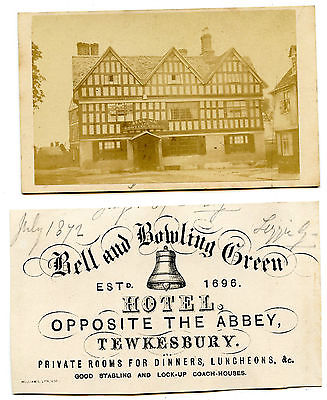 July 1872
Lizzie G-
Bell and Bowling Green
ESTD. 1696.
HOTEL,
OPPOSITE THE ABBEY,
TEWKESBURY.
PRIVATE ROOMS FOR DINNERS, LUNCHEONS, &c.
GOOD STABLING AND LOCK-UP COACH-HOUSES.